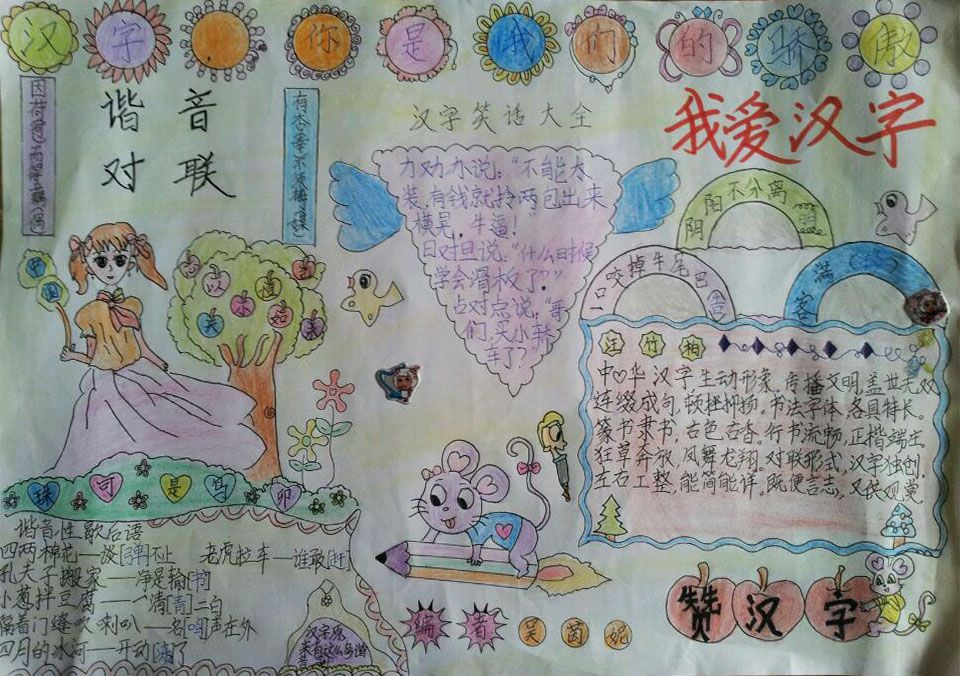 汉字,你是我们的骄傲
谐音
对联
汉字笑话大全
我爱汉字
力对办说:"不能太
装,有钱就拎两包出来
横晃,牛逼!
日对旦说:"什么时候
学会滑板了?"
占对点说:"哥
们,买小轿
车了?"
阴阳不分离
咬掉牛尾巴
口 告
客满
中国
汪竹柏
中华汉字,生动形象。传播文明,盖世无双
连缀成句,顿挫抑扬。书法字体,各具特长。
篆书隶书,古色古香。行书流畅,正楷端庄
狂草奔放,凤舞龙翔。对联形式,汉字独创
左右工整,能简能详。既便言志,又供观赏
谐音性歇后语
四两棉花——谈[弹]不止 老虎拉车——谁敢[赶]
孔夫子搬家——净是输[书]
小葱拌豆腐——清[青]二白
隔着门缝吹喇叭——名[鸣]声在外
四月的冰河——开动[冻]了
汉字原
来有这么
赞汉字
编者
吴茵妮